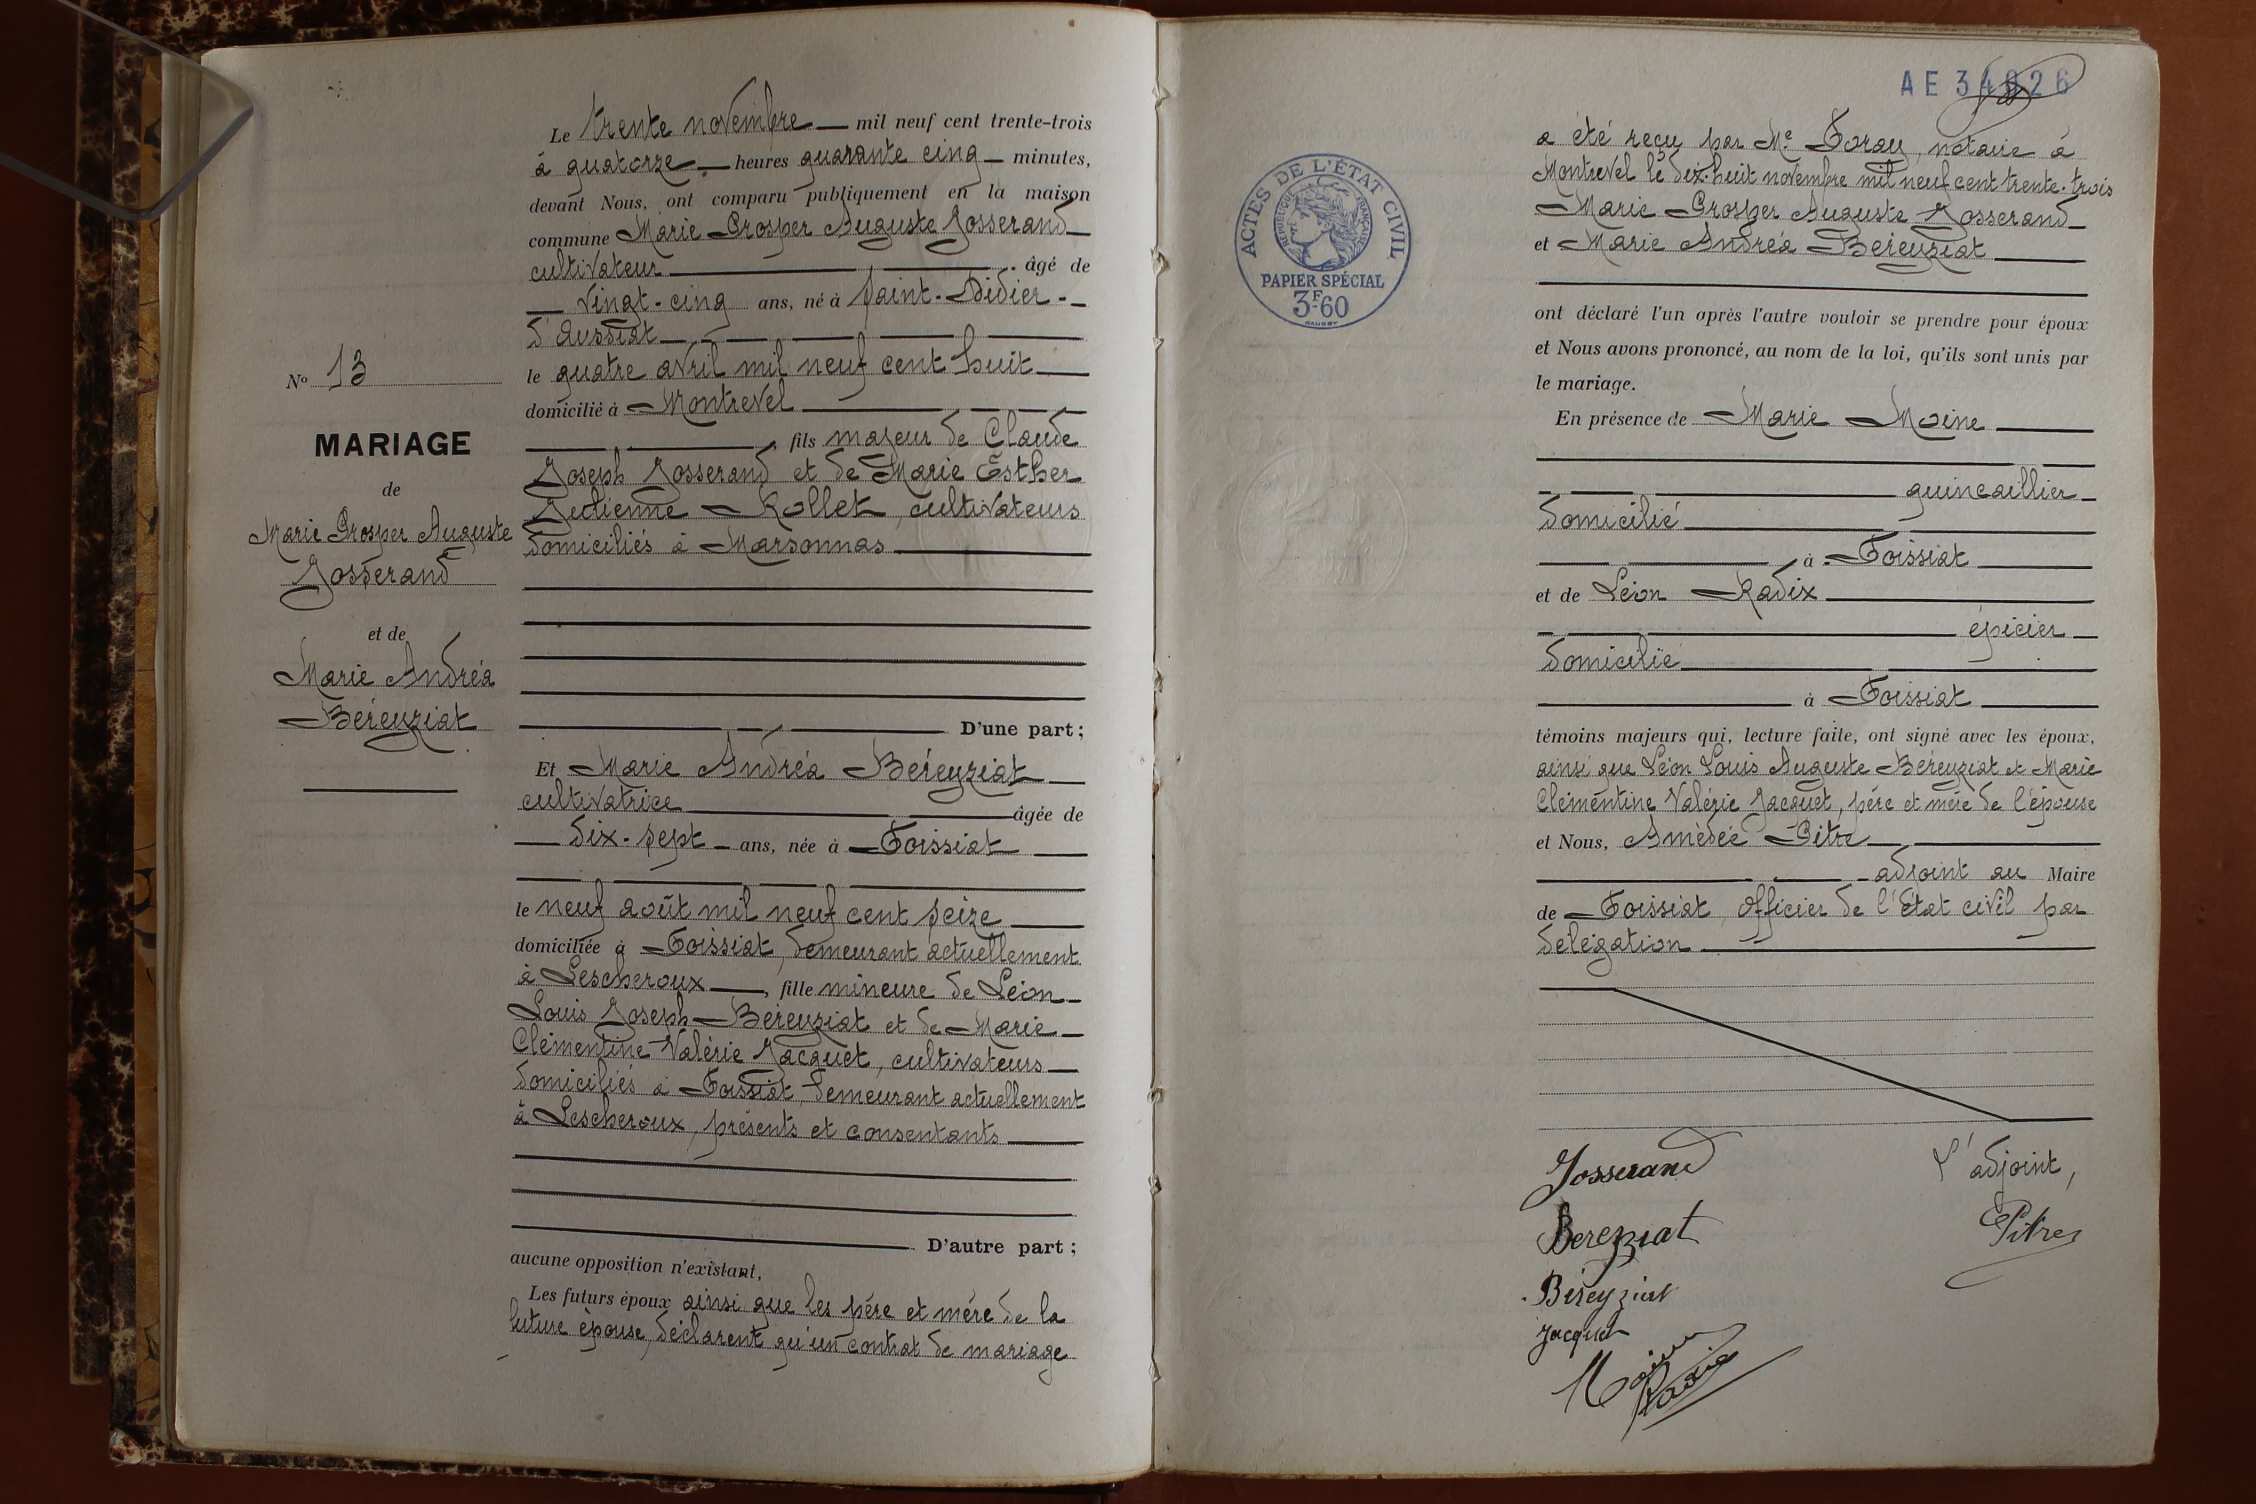 Le trente novembre mil neuf cent trente-trois
à quatorze heures quarante cinq minutes,
devant Nous, ont comparu publiquement en la maison
commune Marie Prosper Auguste Josserand
cultivateur âgé de
vingt-cinq ans, né à Saint-Didier-
d'Aussiat
le quatre avril mil neuf cent huit
domicilié à Montrevel
fils majeur de Claude
Joseph Josserand et de Marie Esther
Julienne Rollet, cultivateurs
domiciliés à Marsonnas
D'une part;
Et Marie Andréa Béreyziat
cultivatrice âgée de
dix-sept ans, née à Foissiat
le neuf août mil neuf cent seize
domiciliée à Foissiat, demeurant actuellement
à Lescheroux, fille mineure de Léon
Louis Joseph Béreyziat et de Marie
Clémentine Valérie Jacquet, cultivateurs
domiciliés à Foissiat, demeurant actuellement
à Lescheroux, présents et consentants
D'autre part;
aucune opposition n'existant,
Les futurs époux ainsi que les père et mère de la
future épouse, déclarent qu'un contrat de mariage
No 13
MARIAGE
de
Marie Prosper Auguste
Josserand
et de
Marie Andréa
Béreyziat
AE 34926
a été reçu par Me Foray, notaire à
Montrevel le dix-huit novembre mil neuf cent trente-trois
Marie Prosper Auguste Josserand
et Marie Andréa Béreyziat
ont déclaré l'un après l'autre vouloir se prendre pour époux
et Nous avons prononcé, au nom de la loi, qu'ils sont unis par
le mariage.
En présence de Marie Moine
quincaillier
domicilié
à Foissiat
et de Léon Radix
épicier
domicilié
à Foissiat
témoins majeurs qui, lecture faite, ont signé avec les époux,
ainsi que Léon Louis Auguste Béreyziat et Marie
Clémentine Valérie Jacquet, père et mère de l'épouse
et Nous, Amédée Pitre
adjoint au Maire
de Foissiat, officier de l'Etat civil par
délégation
ACTES DE L'ÉTAT CIVIL
REPUBLIQUE FRANÇAISE
PAPIER SPÉCIAL
3F60
Josserand
Bereyziat
Béreyziat
Jacquet
Moine
Radix
L'adjoint,
Pitre